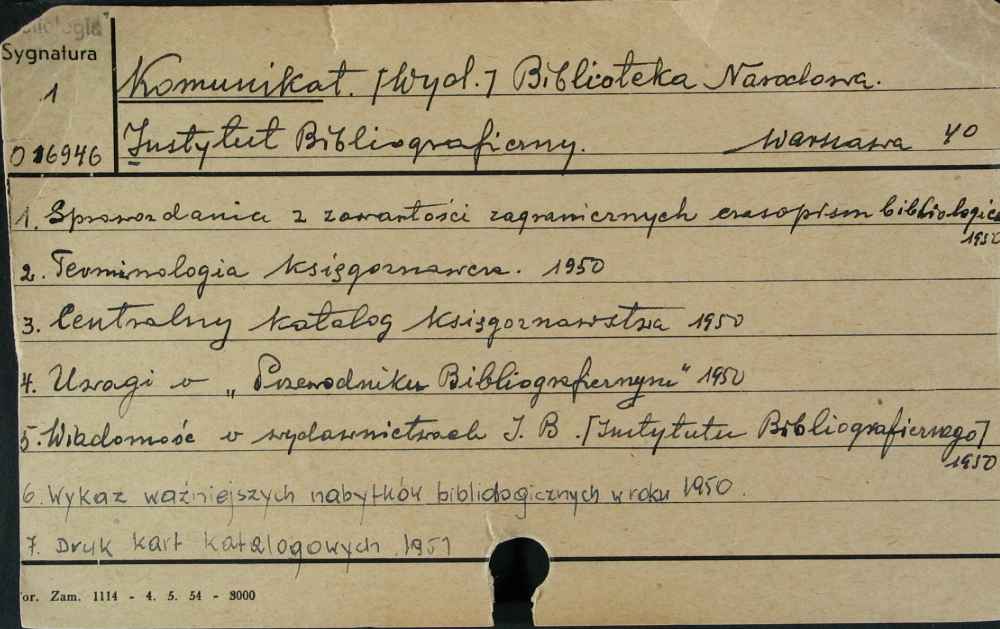 Sygnatura
1
O 16946
Komunikat. [Wyd.] Biblioteka Narodowa.
Instytut Bibliograficzny. Warszawa 4o
1. Sprawozdania z zawartości zagranicznych czasopism bibliologicz
1950
2. Terminologia księgoznawcza. 1950
3. Centralny katalog księgoznawstwa 1950
4. Uwagi o „Przewodniku Bibliograficznym" 1950
5. Wiadomość o wydawnictwach I. B. [Instytutu Bibliograficznego]
1950
6. Wykaz ważniejszych nabytków bibliologicznych w roku 1950.
7. Druk kart katalogowych. 1951
or. Zam. 1114 - 4. 5. 54 - 3000